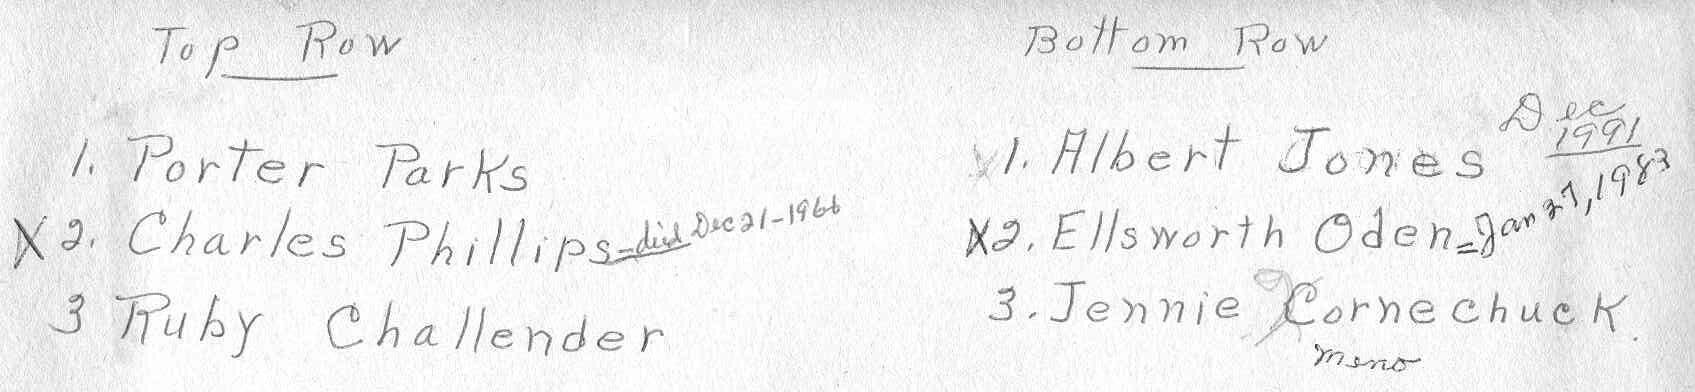 Top Row
1. Porter Parks
X 2. Charles Phillips - died Dec 21-1966
3 Ruby Challender
Bottom Row
X 1. Albert Jones Dec 1991
X 2. Ellsworth Oden = Jan 27, 1983
3. Jennie Cornechuck
meno